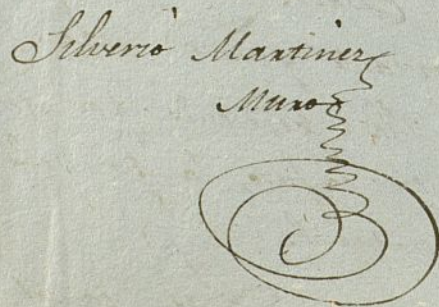 Silverio Martinez
Muro